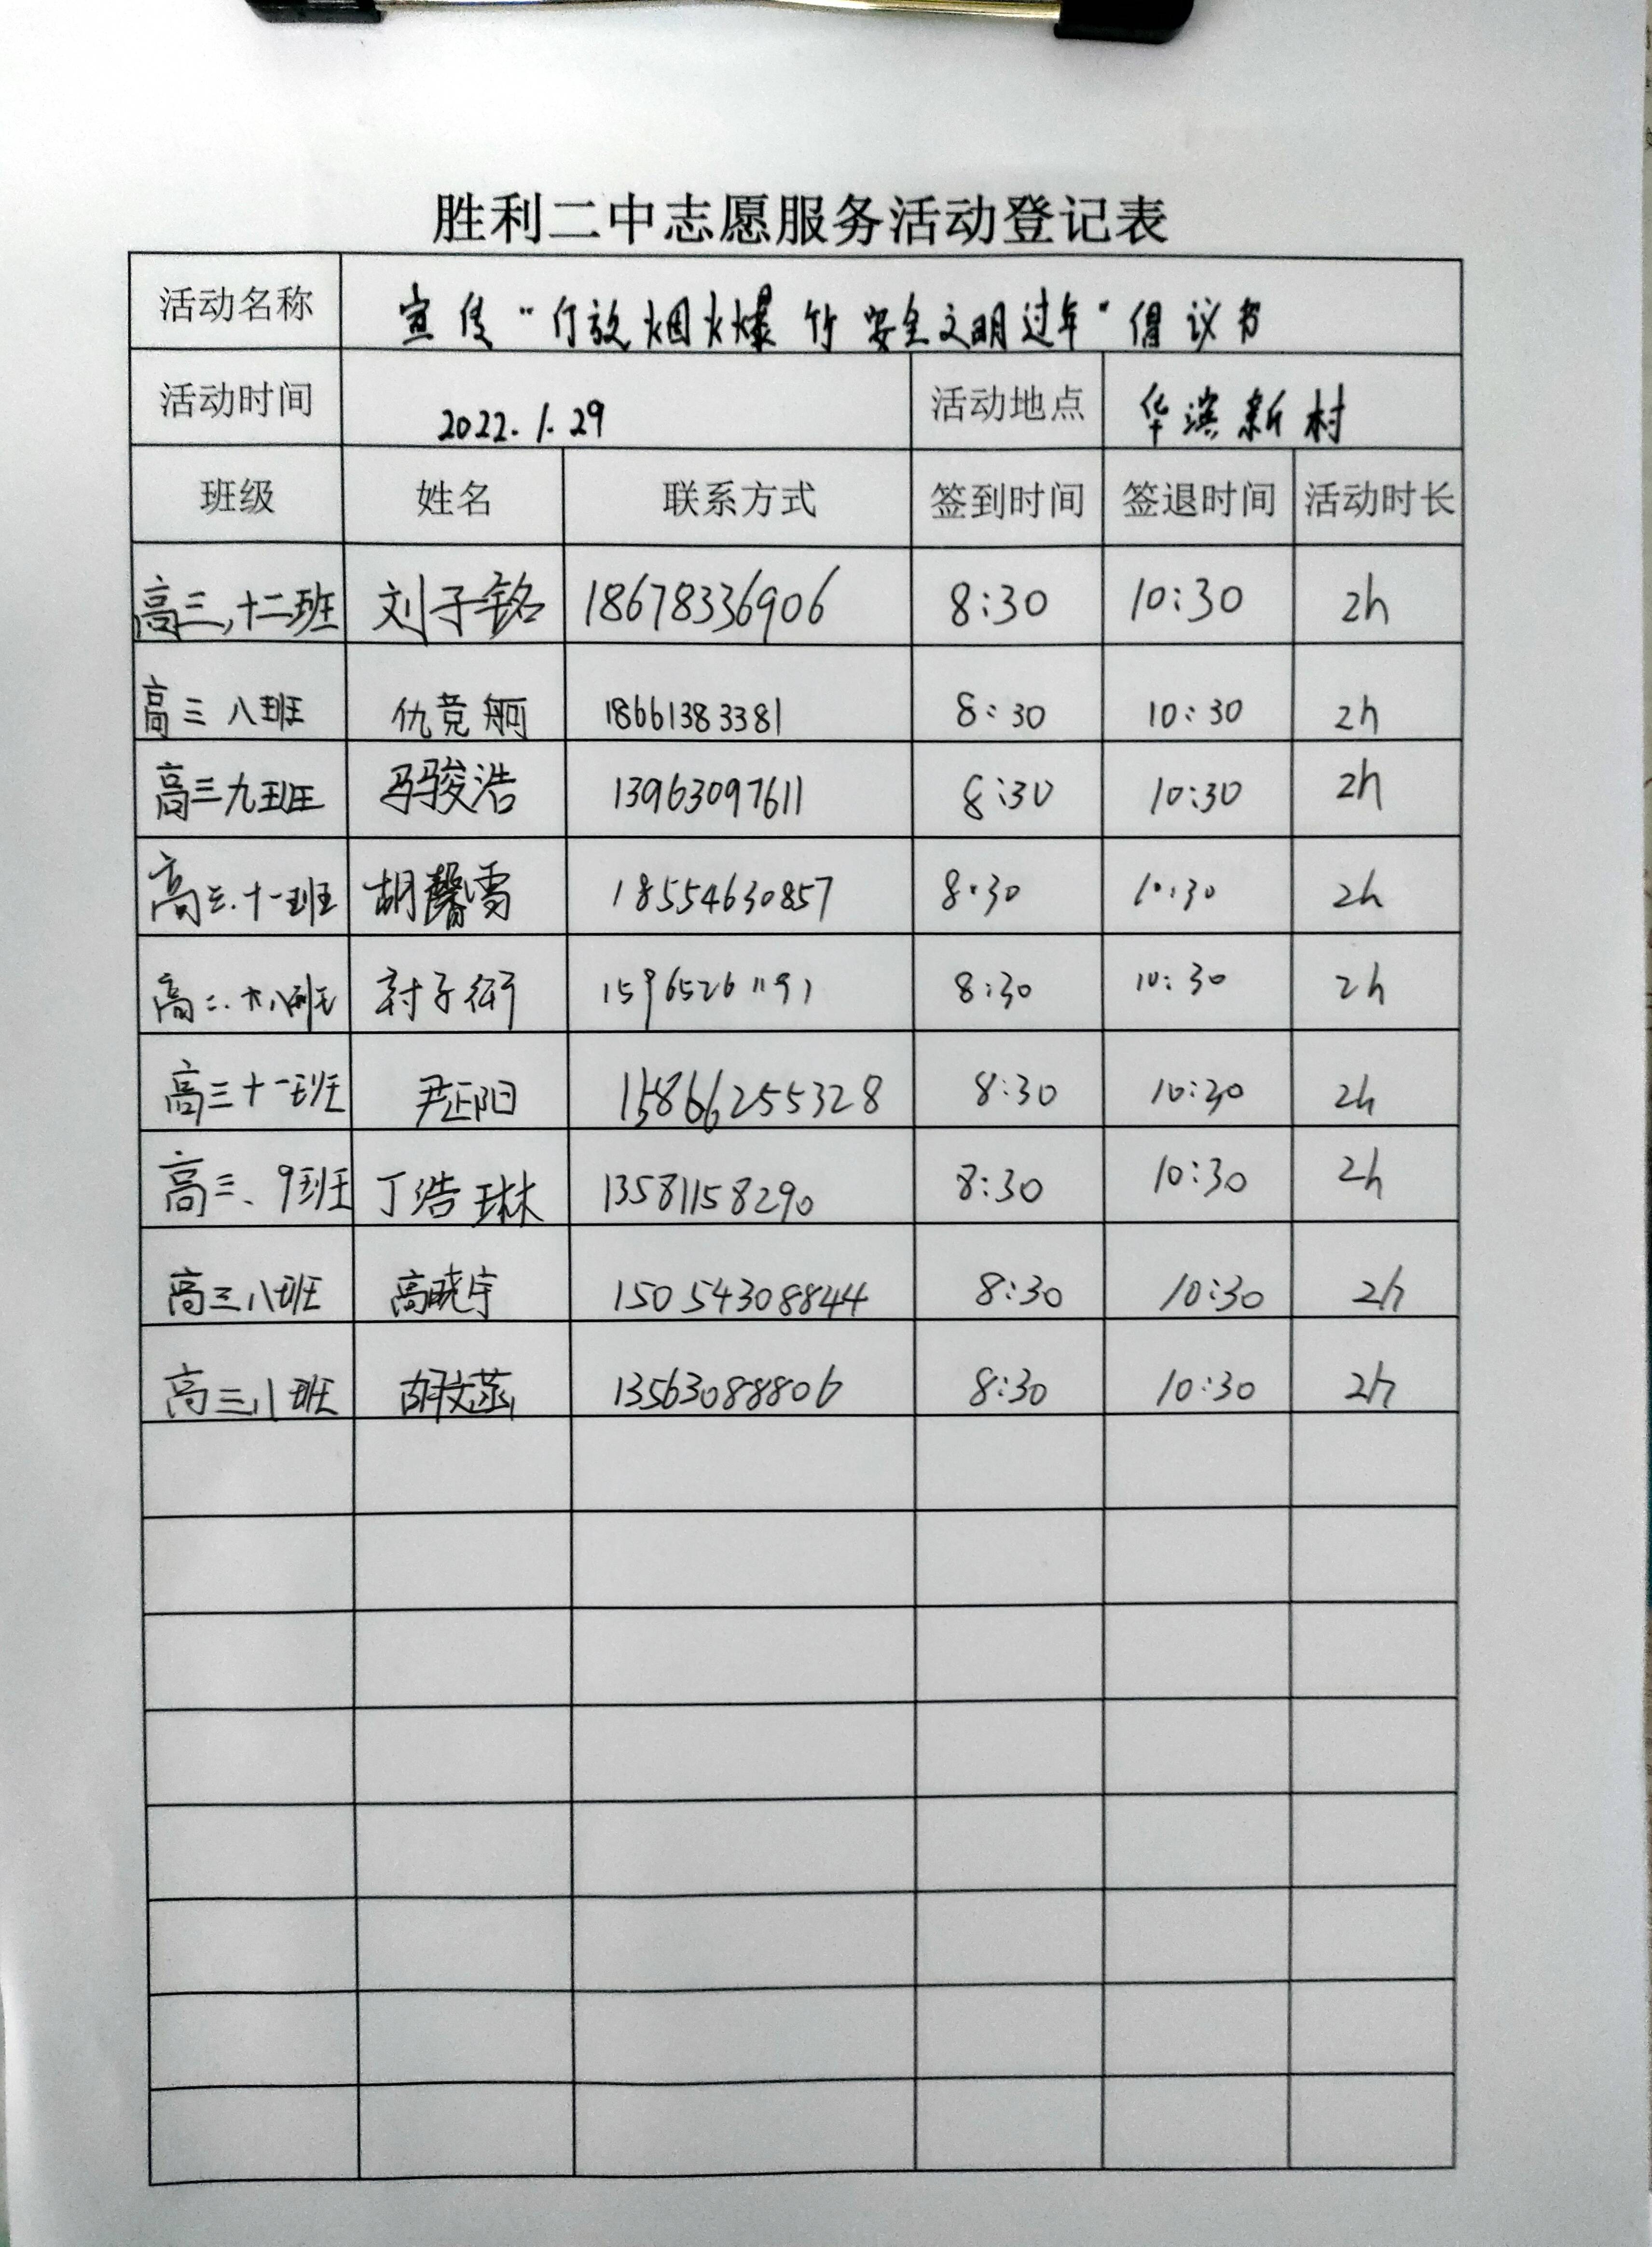 胜利二中志愿服务活动登记表
活动名称 宣传“行放烟火爆竹安全文明过年”倡议书
活动时间 2022.1.29 活动地点 华滨新村
班级 姓名 联系方式 签到时间 签退时间 活动时长
高三,十二班 刘子铭 18678336906 8:30 10:30 2h
高三八班 仇竞舸 18661383381 8:30 10:30 2h
高三九班 冯骏浩 13963097611 8:30 10:30 2h
高三.十一班 胡馨雪 18554630857 8:30 10:30 2h
高二. 子衍 15965261191 8:30 10:30 2h
高三十一班 尹正阳 15866255328 8:30 10:30 2h
高三、9班 丁浩琳 13581158290 8:30 10:30 2h
高三八班 高晓宇 15054308844 8:30 10:30 2h
高三八班 胡文菡 13563088806 8:30 10:30 2h